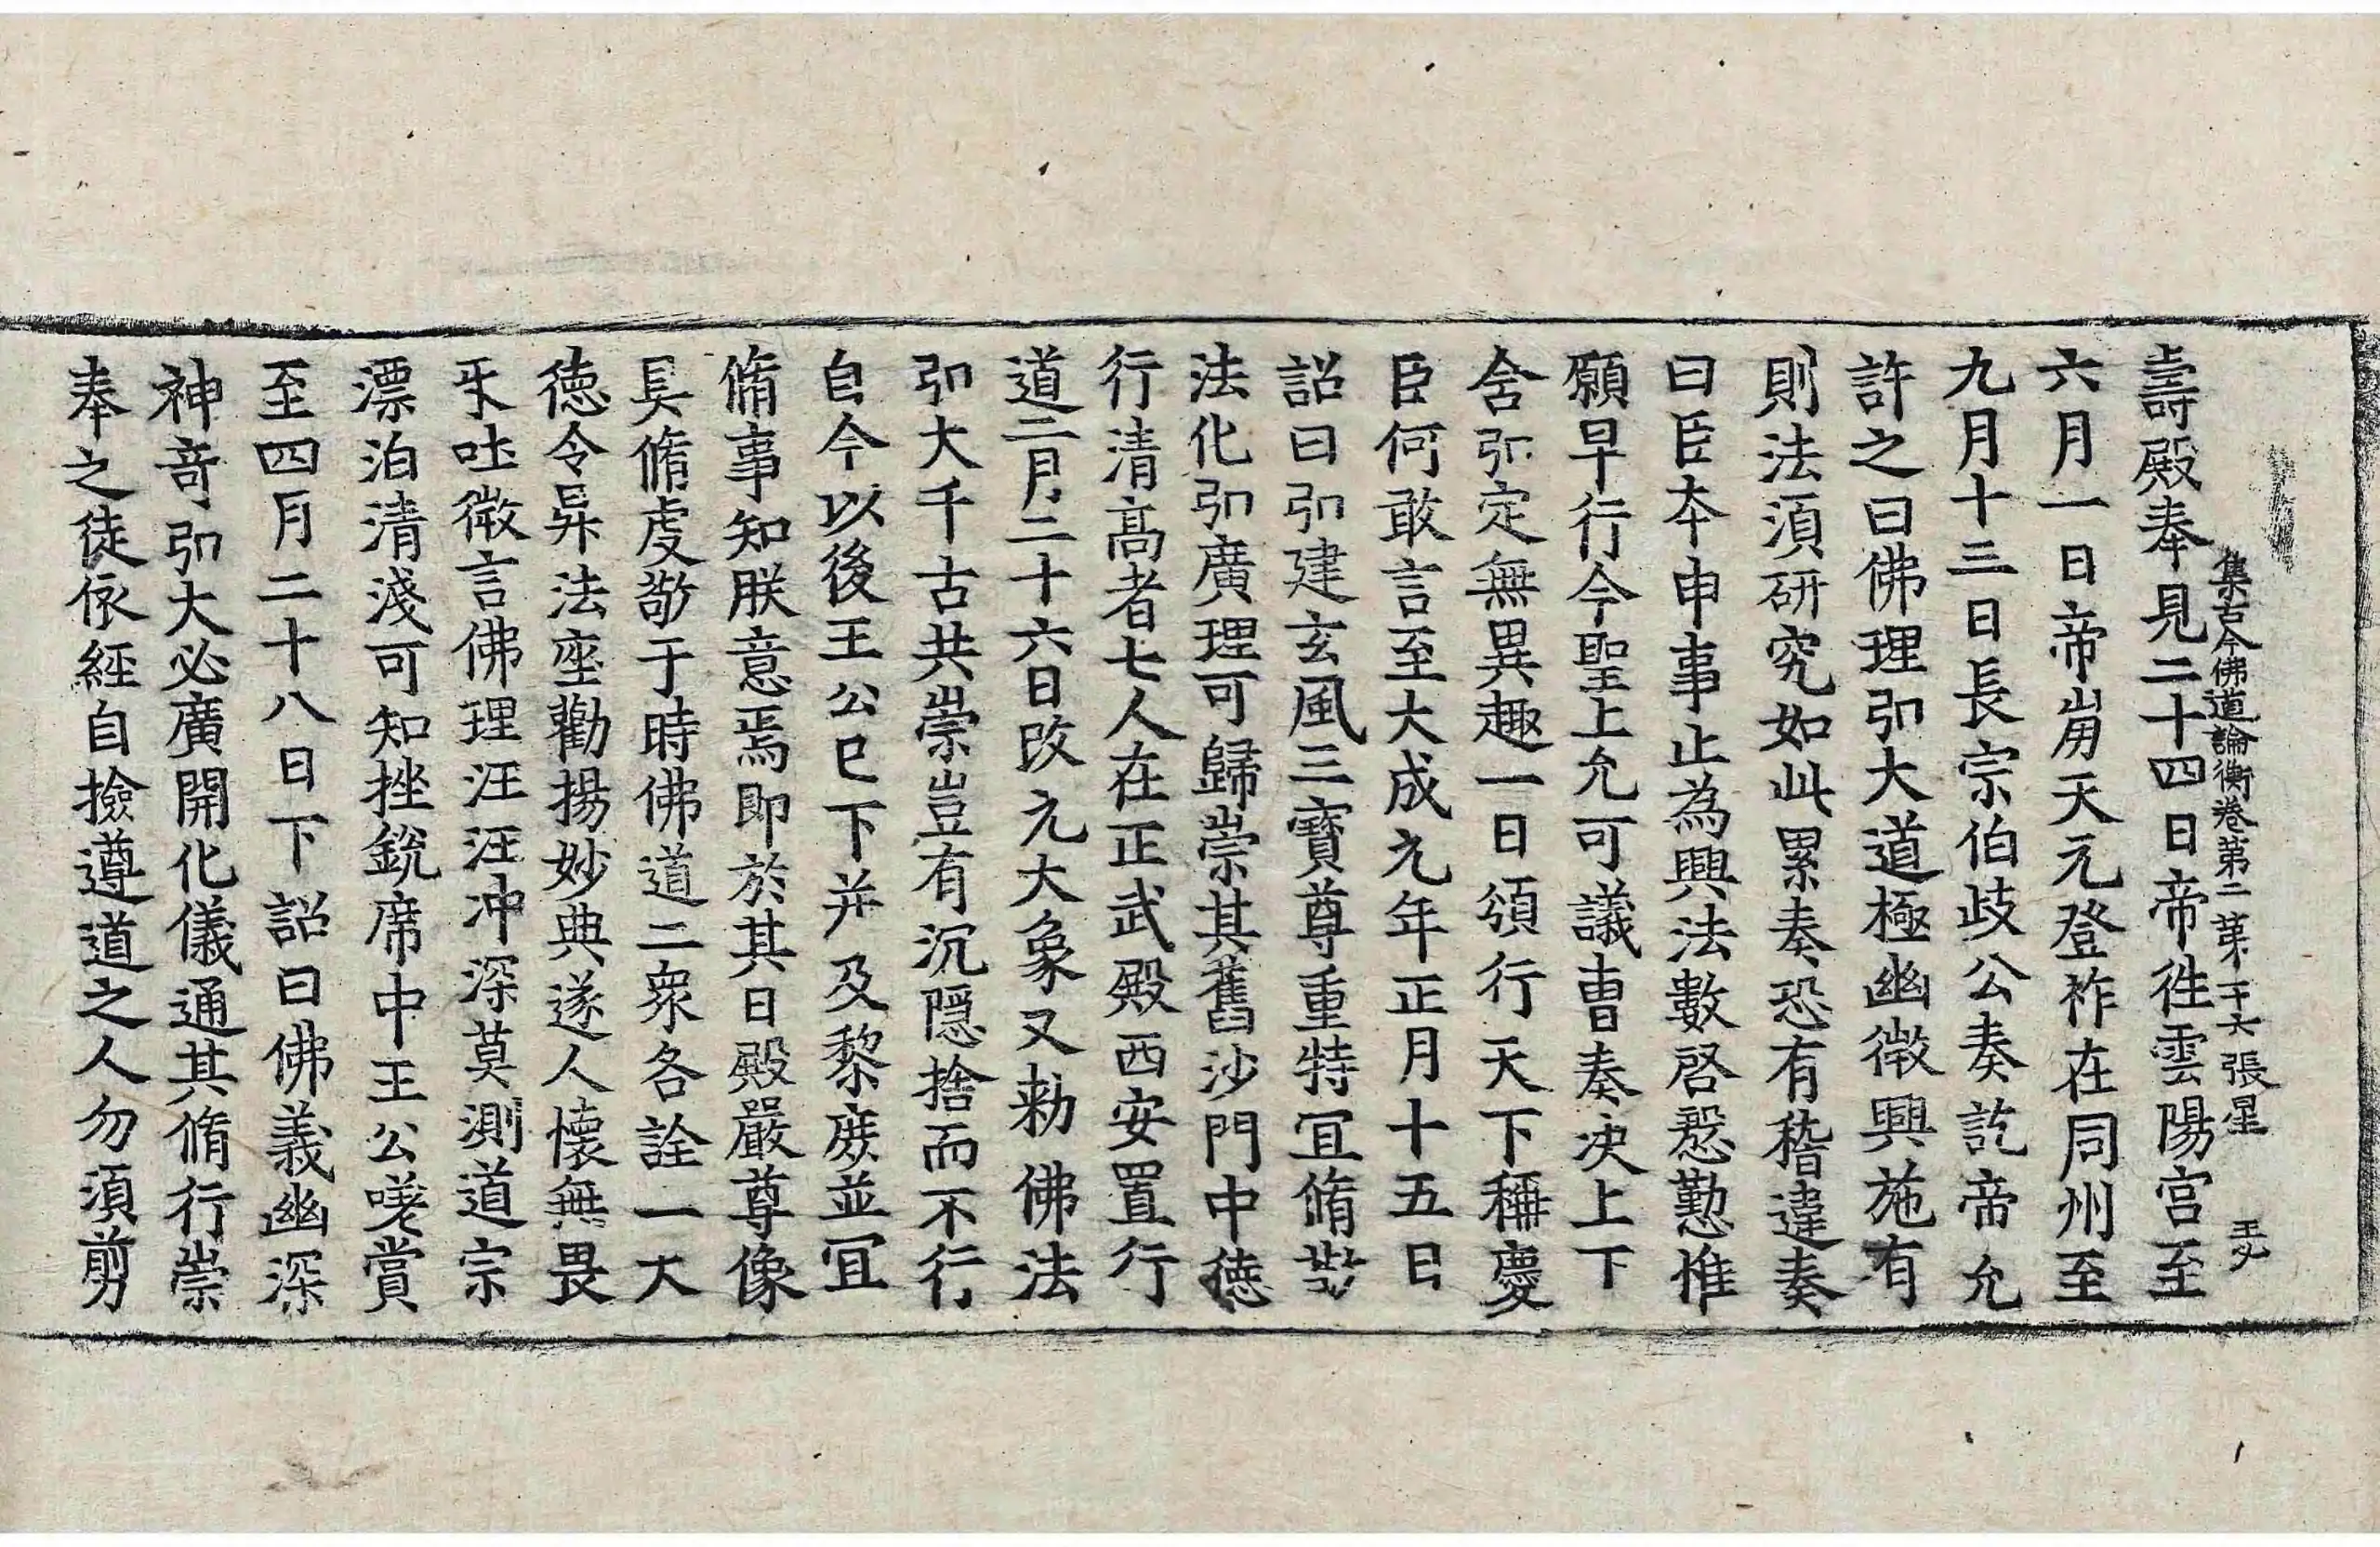 集古今佛道論衡卷第二 第二十六張 星
壽殿奉見二十四日帝徃雲陽宫至
六月一日帝崩天元登祚在同州至
九月十三日長宗伯歧公奏訖帝允
許之曰佛理弘大道極幽微興施有
則法湏研究如此累奏恐有稽違奏
曰臣夲申事止為興法數啓慇懃惟
願早行今聖上允可議曺奏决上下
含弘定無異趣一日頒行天下稱慶
臣何敢言至大成元年正月十五日
詔曰弘建玄風三寶尊重特冝脩敬
法化弘廣理可歸崇其舊沙門中徳
行清髙者七人在正武殿西安置行
道二月二十六日改元大象又勑佛法
弘大千古共崇豈有沉隠捨而不行
自今以後王公已下并及黎庻並冝
脩事知朕意焉即於其日殿嚴尊像
具脩虔敬于時佛道二衆各詮一大
徳令昇法座勸揚妙典遂人懷無畏
互吐微言佛理汪汪冲深莫測道宗
漂泊清淺可知挫銳席中王公嗟賞
至四月二十八日下詔曰佛義幽深
神竒弘大必廣開化儀通其脩行崇
奉之徒依經自撿遵道之人勿湏剪